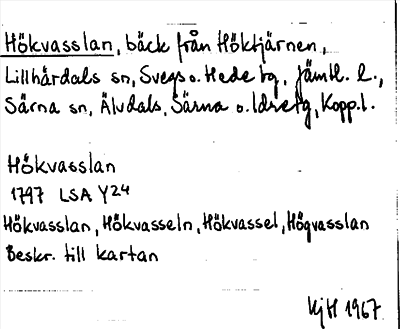 Hökvasslan, bäck från Höktjärnen,
Lillhärdals sn, Svegs o. Hede tg, Jämtl. l.,
Särna sn, Älvdals, Särna o. Idre tg, Kopp. l.
Hökvasslan
1797 LSA Y24
Hökvasslan, Hökvasseln, Hökvassel, Högvasslan
Beskr. till kartan
KjH 1967